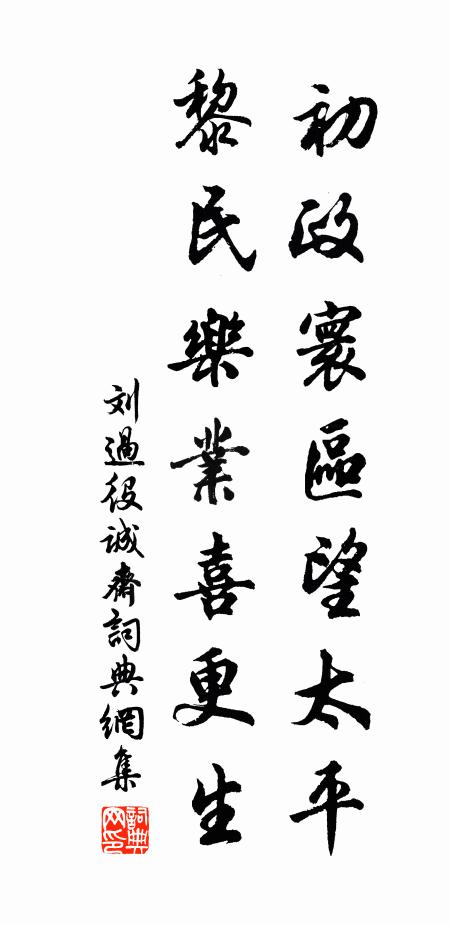 初政寰區望太平
黎民樂業喜更生
刘過役誠齋詞典網集
詞典
网印